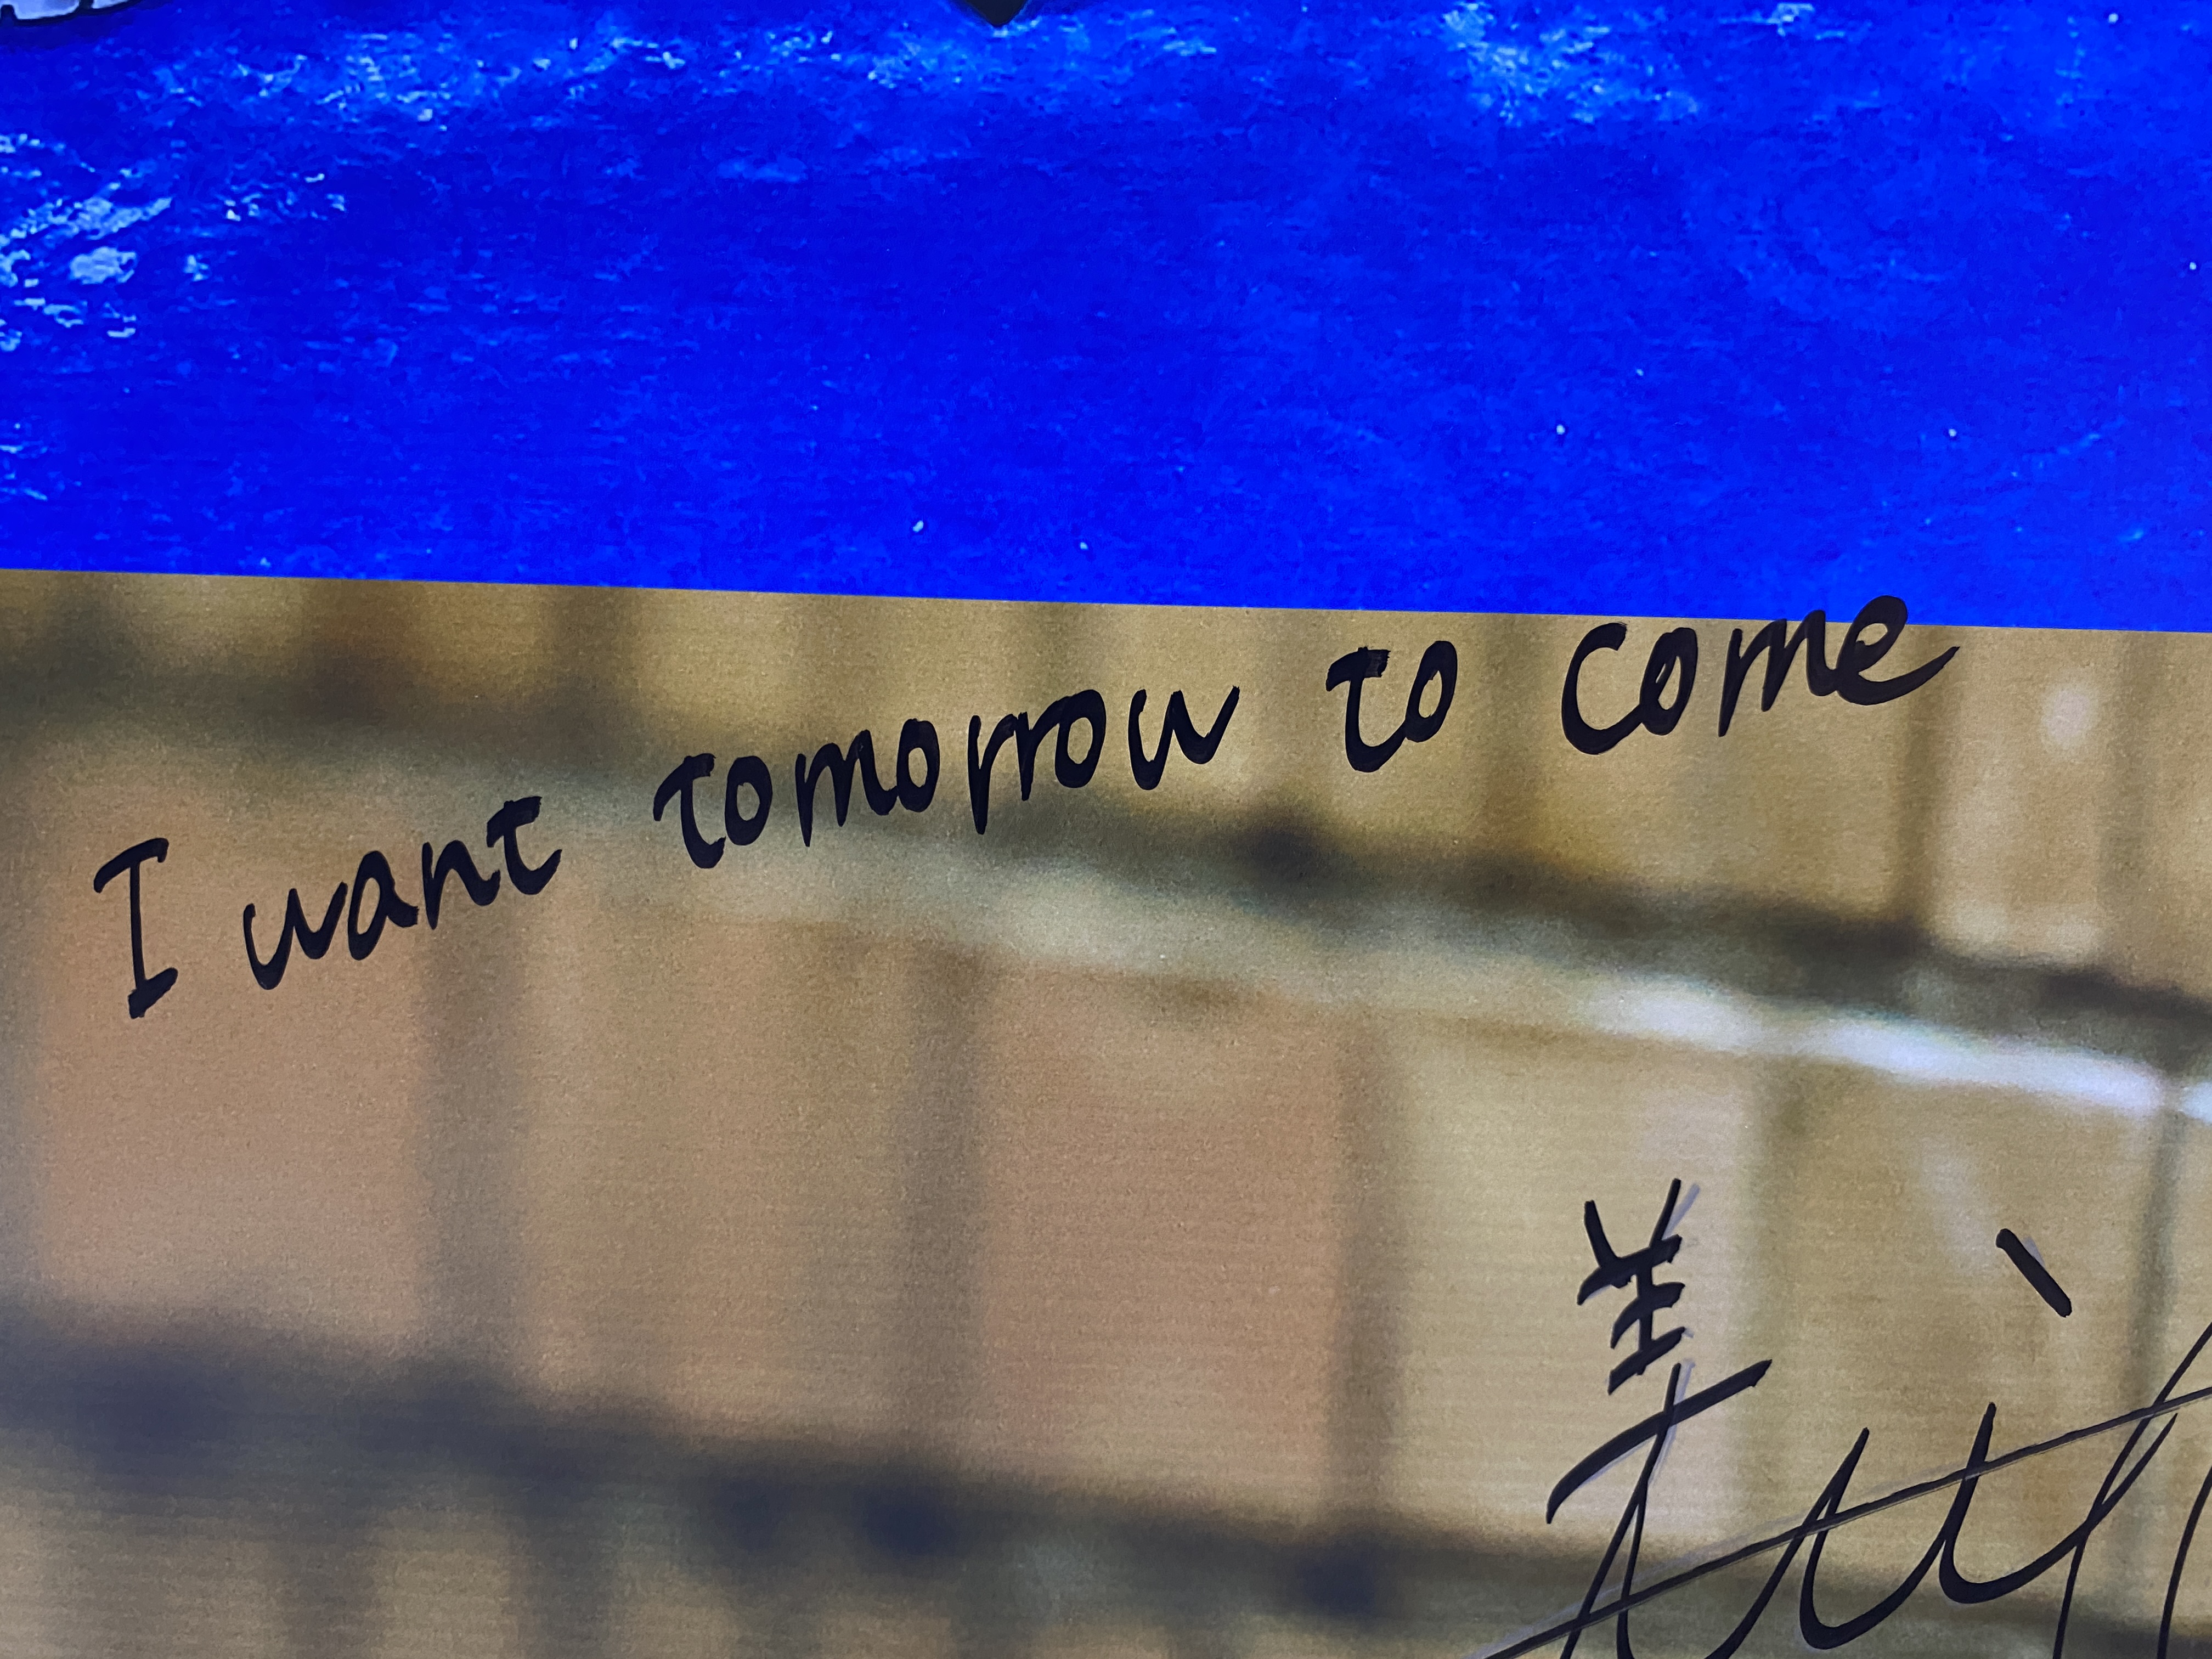 I want tomorrow to come